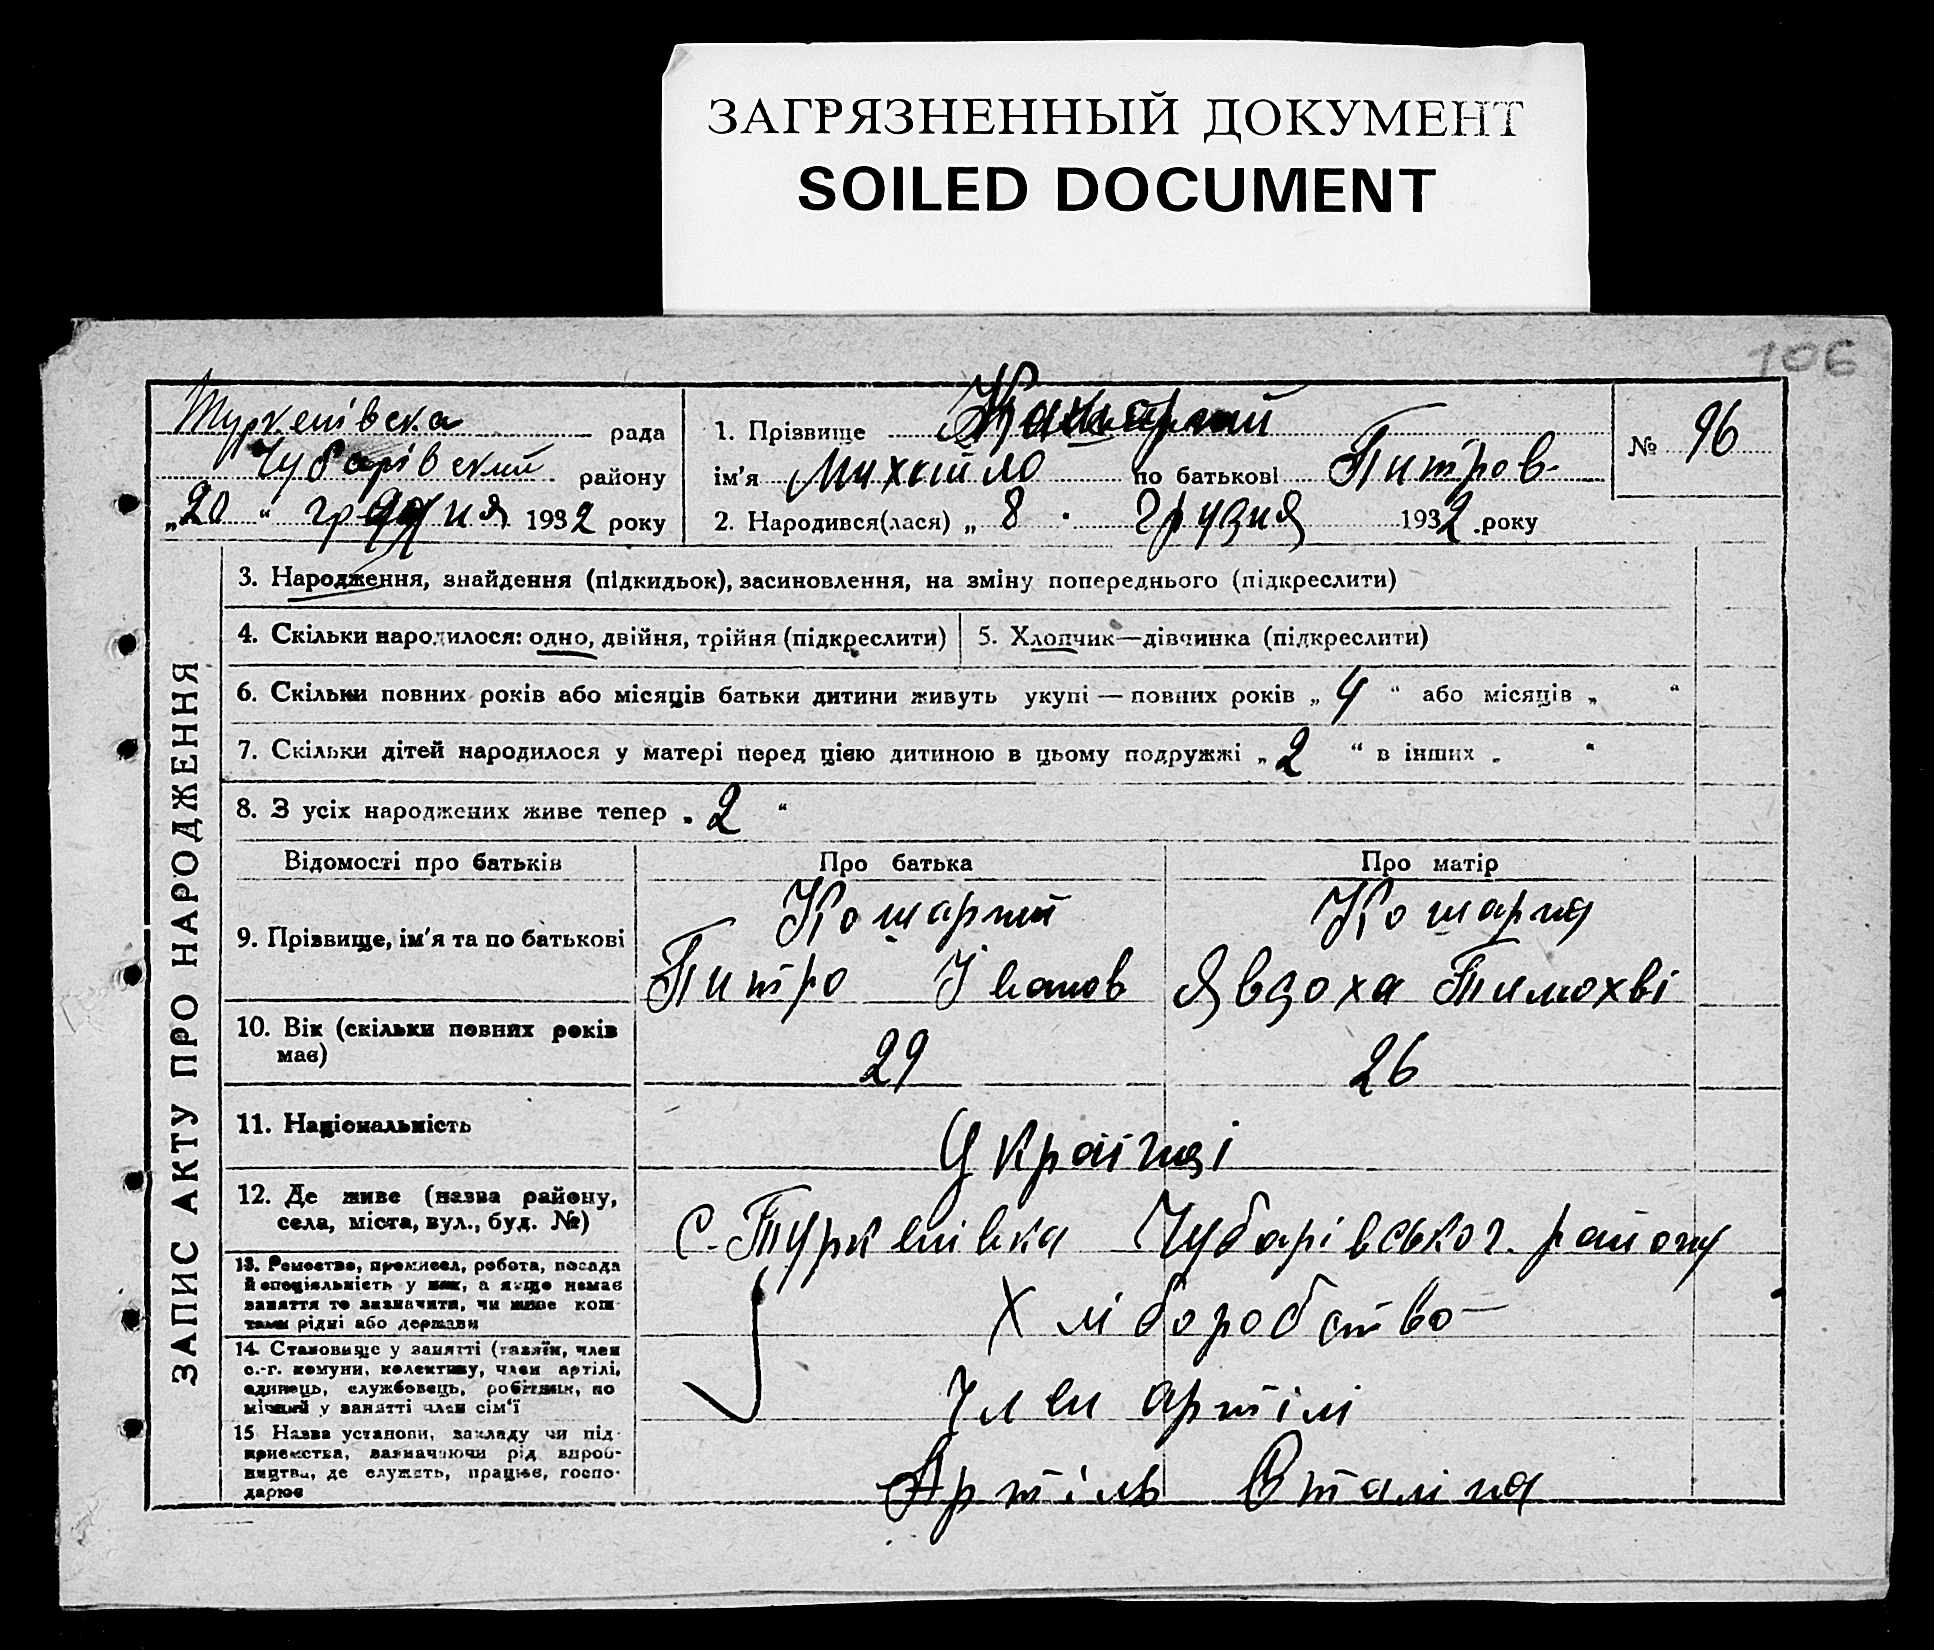 ЗАГРЯЗНЕННЫЙ ДОКУМЕНТ
SOILED DOCUMENT
106
Туркенівска рада
Чубарівский району
„20“ грудня 1932 року
1. Прізвище Кошарний
ім'я Михайло по батькові Питров-
2. Народився(лася) „8“ грудня 1932 року
№ 96
ЗАПИС АКТУ ПРО НАРОДЖЕННЯ
3. Народження, знайдення (підкидьок), засиновлення, на зміну попереднього (підкреслити)
4. Скільки народилося: одно, двійня, трійня (підкреслити)
5. Хлопчик—дівчинка (підкреслити)
6. Скільки повних років або місяців батьки дитини живуть укупі — повних років „4“ або місяців „ “
7. Скільки дітей народилося у матері перед цією дитиною в цьому подружжі „2“ в інших „ “
8. З усіх народжених живе тепер „2“
Відомості про батьків Про батька Про матір
9. Прізвище, ім'я та по батькові
Кошарний
Питро Іванов
Кошарня
Явдоха Тимохві
10. Вік (скільки повних років
має)
29 26
11. Національність
Українці
12. Де живе (назва району,
села, міста, вул., буд. №)
с. Туркенівка Чубарівськог. району
13. Ремество, промисел, робота, посада
й спеціяльність у них, а якщо немає
заняття то зазначити, чи живе кош-
тами рідні або держави
Хліборобство
14. Становище у занятті (хазяїн, член
с.-г. комуни, колективу, член артілі,
одинець, службовець, робітник, по
мічний у занятті член сім'ї
Член артілі
15 Назва установи, закладу чи під-
приємства, зазначаючи рід вироб-
ництва, де служить, працює, госпо-
дарює
Артіль Сталіна